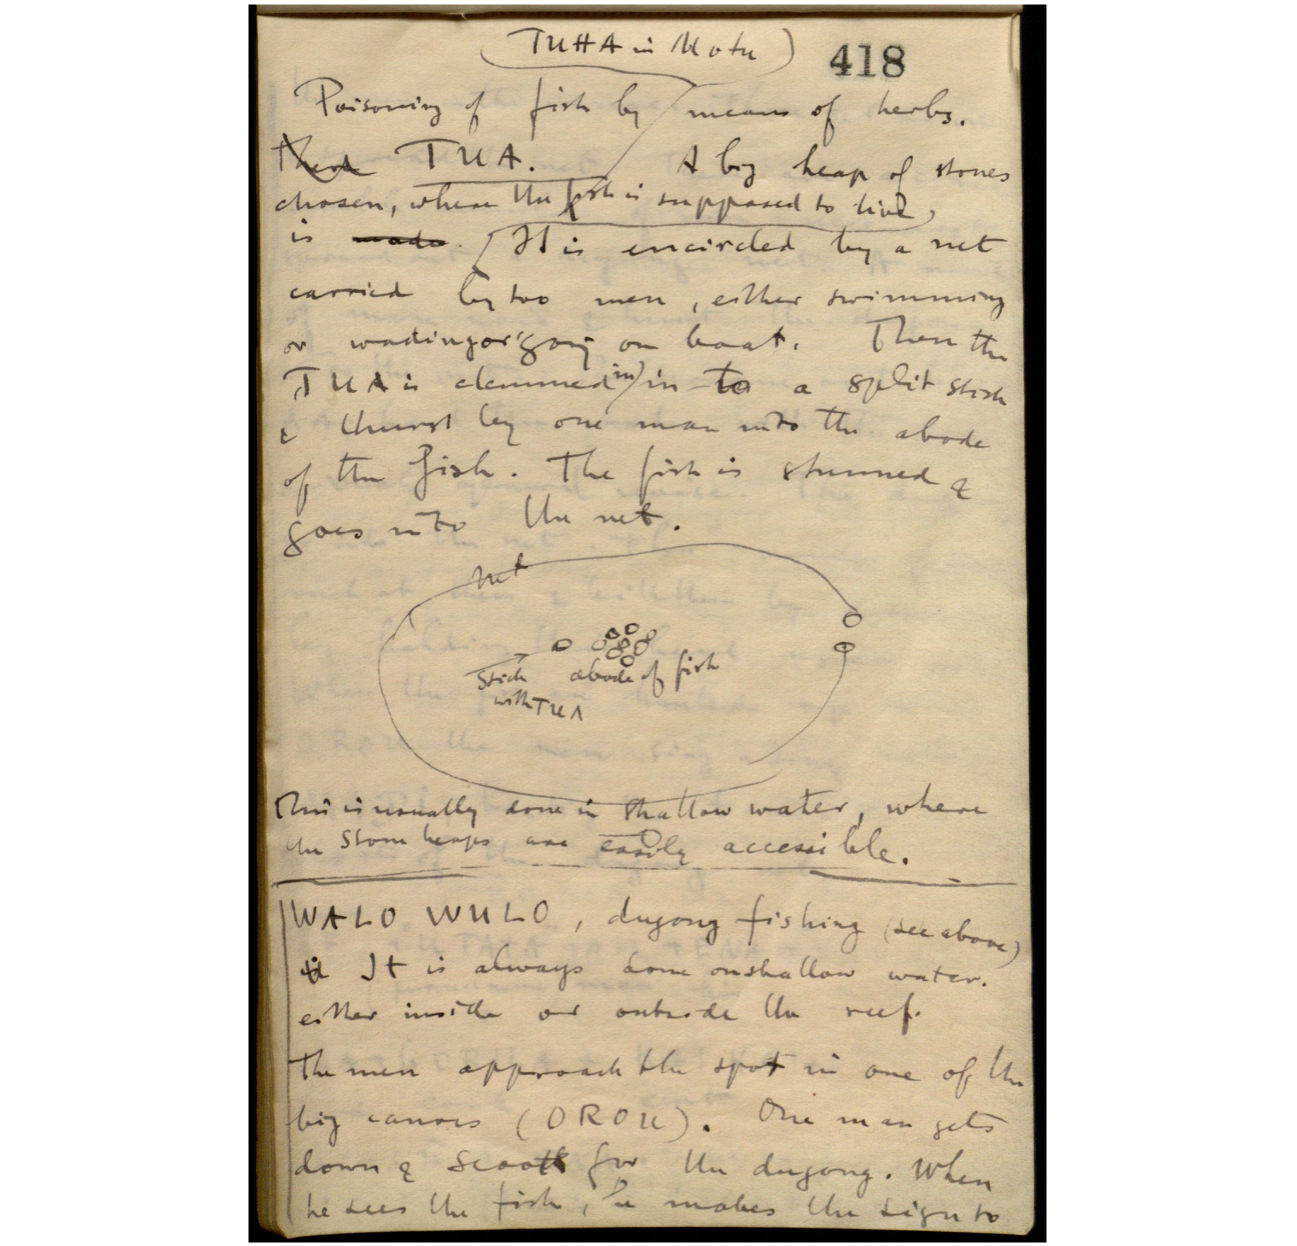 (TUHA in Motu)
418
Poisoning of fish by means of herbs.
TUA. A big heap of stones
chosen, where the fish is supposed to live,
is made. It is encircled by a net
carried by two men, either swimming
or wading or going on boat. Then the
TUA is clemmed in) in to a split stick
& thurst by one man into the abode
of the fish. The fish is stunned &
goes into the net.
net
stick
with TUA
abode of fish
This is usually done in shallow water, where
the stone heaps are easily accessible.
WALO WULO, dugong fishing (see above)
It is always done on shallow water.
either inside or outside the reef.
The men approach the spot in one of the
big canoes (OROU). One man gets
down & scoots for the dugong. When
he sees the fish, he makes the sign to